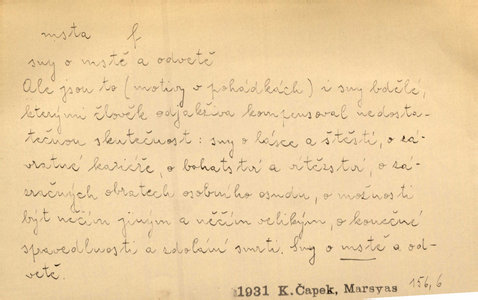 msta f
sny o mstě a odvetě
Ale jsou to (motivy v pohádkách) i sny bdělé,
kterými člověk odjakživa kompensoval nedosta-
tečnou skutečnost: sny o lásce a štěstí, o zá-
vratné kariéře, o bohatství a vítězství, o zá-
zračných obratech osobního osudu, o možnosti
být něčím jiným a něčím velikým, o konečné
spravedlnosti a zdolání smrti. Sny o mstě a od-
vetě.
1931 K.Čapek, Marsyas 156,6